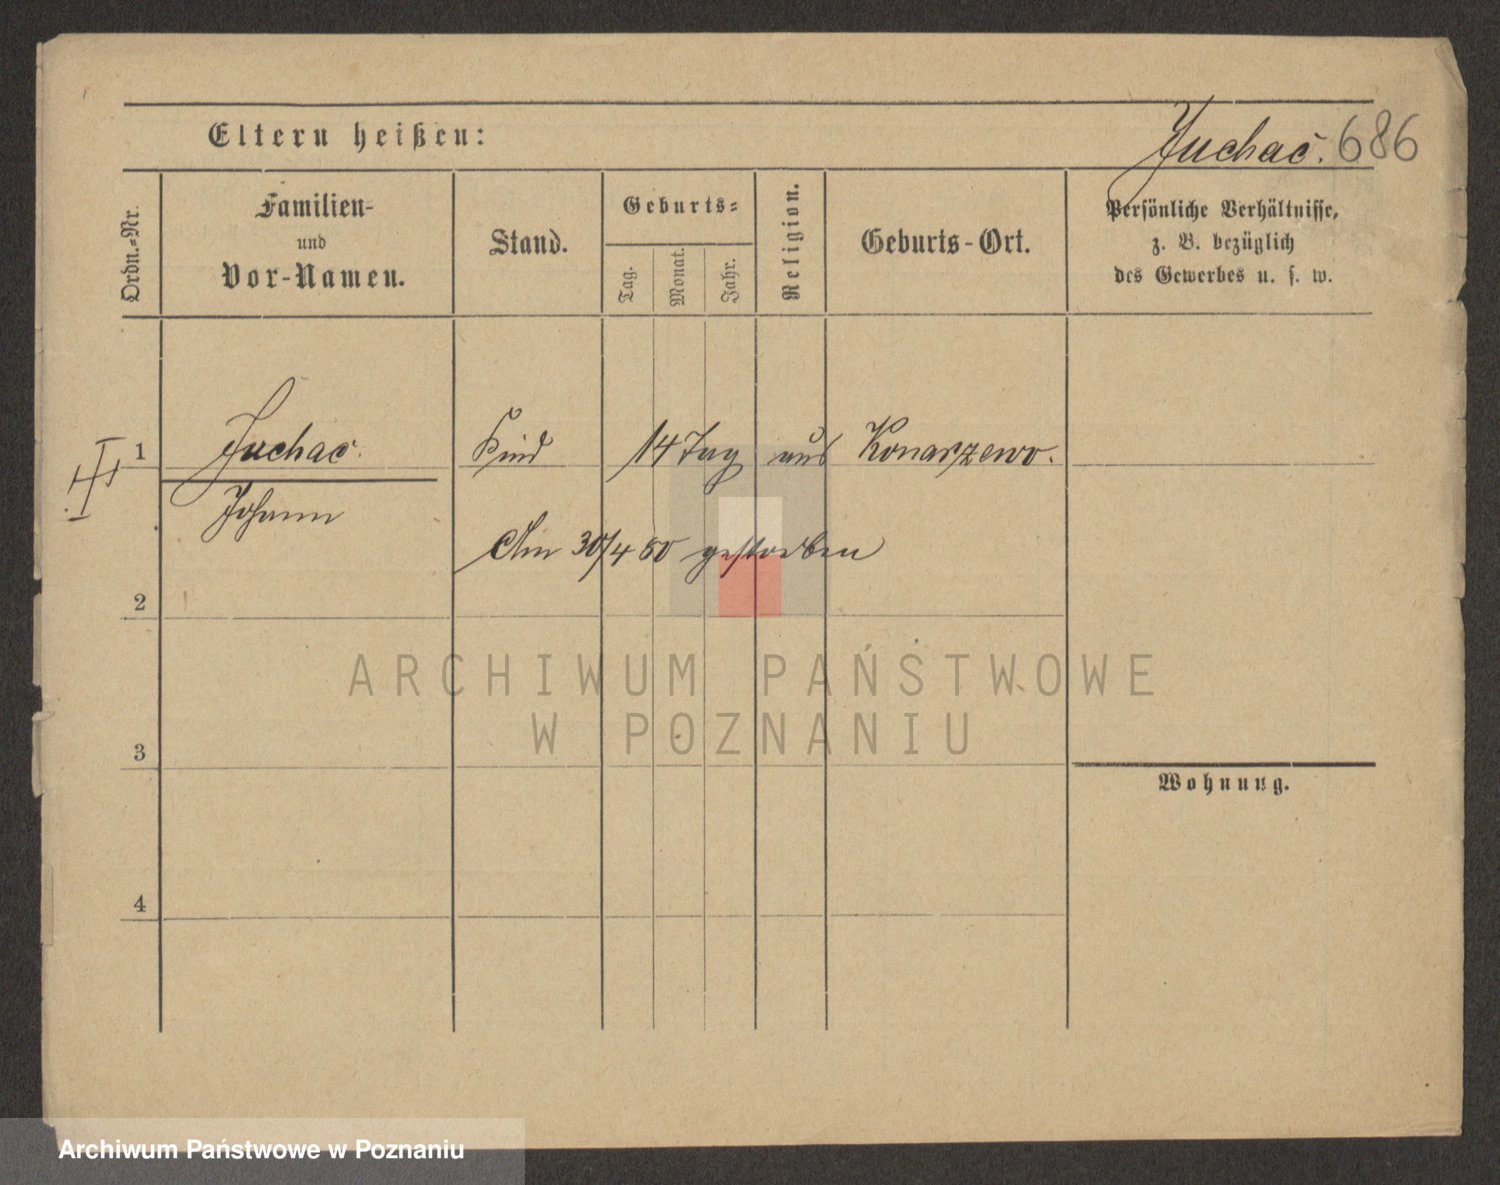 Eltern heißen:
Juchac. 686
Ordn.-Nr.
Familien-
und
Vor-Namen.
Stand.
Geburts-
Tag.
Monat.
Jahr.
Religion.
Geburts-Ort.
Persönliche Verhältnisse,
z. B. bezüglich
des Gewerbes u. s. w.
1 Juchac. Kind 14 Tag aus Konarzewo.
Johann
Am 30/4 80 gestorben
2
3
4
Wohnung.
ARCHIWUM PAŃSTWOWE
W POZNANIU
Archiwum Państwowe w Poznaniu